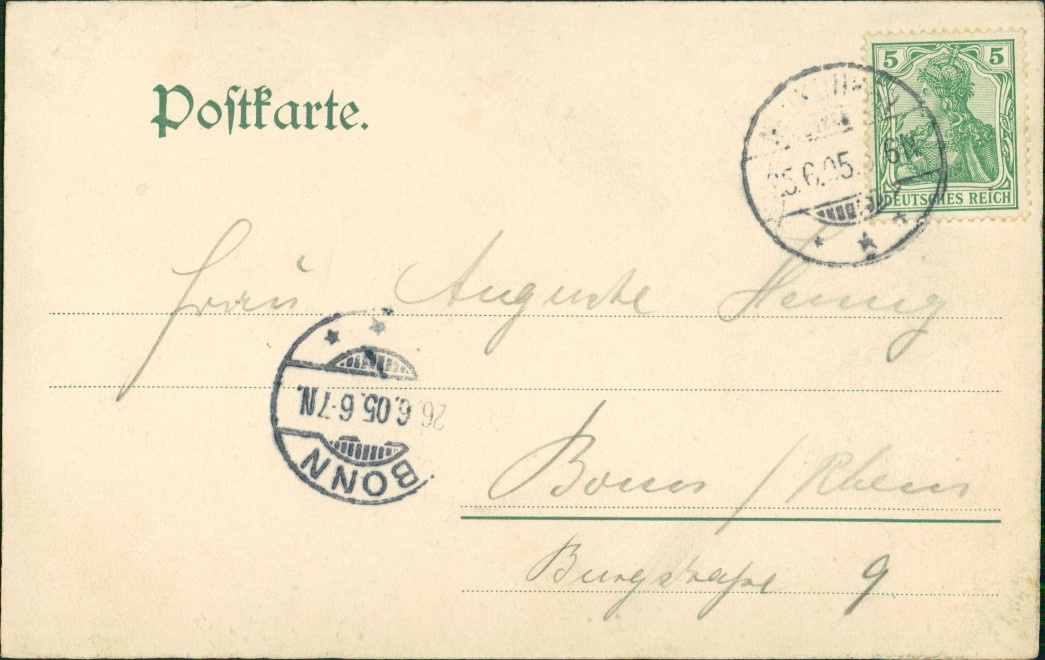 Postkarte.
5 5
DEUTSCHES REICH
5.6.05. 6N
Frau Auguste Hennig
26.6.05.6-7N.
BONN
Bonn / Rhein
Burgstraße 9